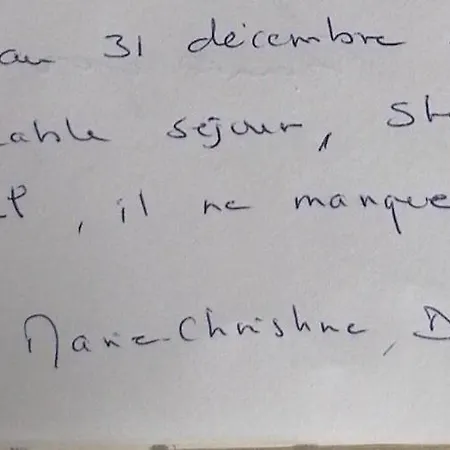 au 31 décembre
able séjour, St
il ne manque
Marie-Christine, D